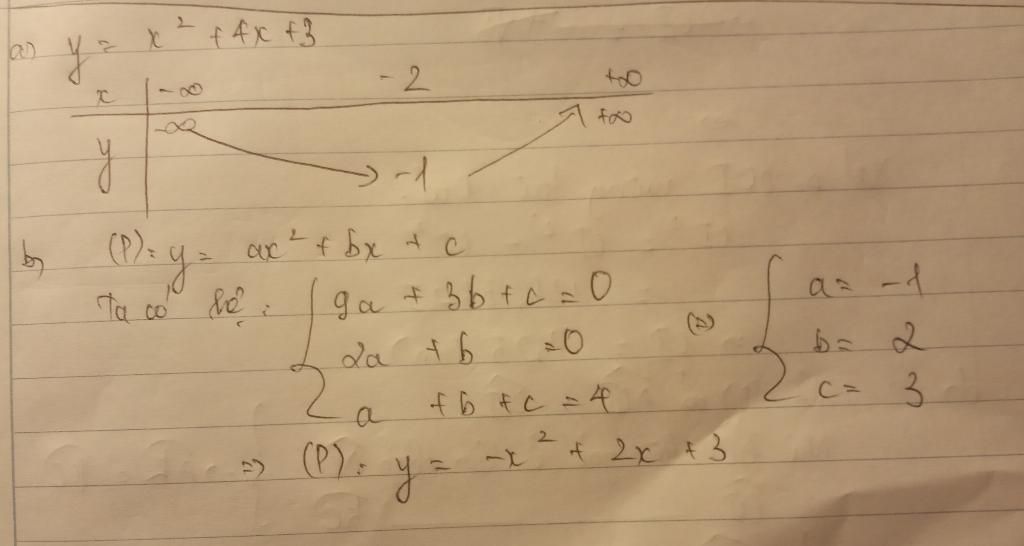 a) y = x² + 4x + 3
x | -∞ -2 +∞
y | -∞ -1 +∞
b, (P): y = ax² + bx + c
Ta có hệ: { 9a + 3b + c = 0 (=) { a = -1
2a + b = 0 b = 2
a + b + c = 4 c = 3
=> (P): y = -x² + 2x + 3